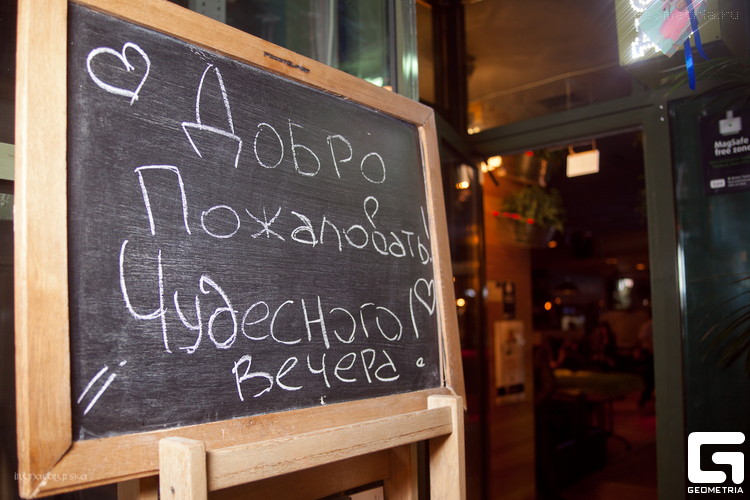 Добро
Пожаловать!
Чудесного!
вечера
MagSafe
free zone
GEOMETRIA